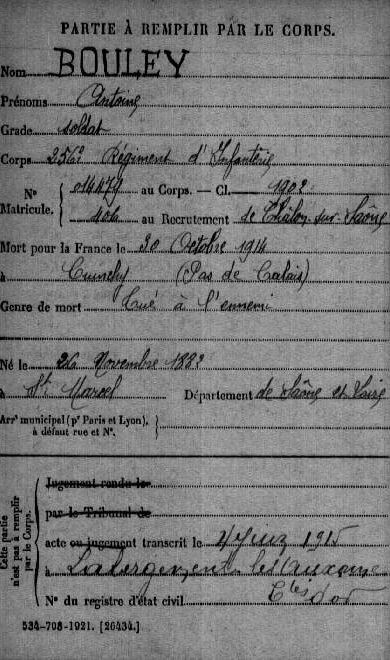 PARTIE À REMPLIR PAR LE CORPS.
Nom BOULEY
Prénoms Antoine
Grade soldat
Corps 256e Régiment d'Infanterie
Nº Matricule. 014479 au Corps. — Cl. 1902
406 au Recrutement de Châlon-sur-Saône
Mort pour la France le 30 Octobre 1914
à Cuinchy (Pas de Calais)
Genre de mort Tué à l'ennemi
Né le 26 Novembre 1882
à St Marcel Département de Saône et Loire
Arrt municipal (pr Paris et Lyon),
à défaut rue et Nº.
Cette partie n'est pas à remplir par le Corps.
Jugement rendu le
par le Tribunal de
acte ou jugement transcrit le 4 Juin 1915
à Labergement les Auxonne
Nº du registre d'état civil Côte d'or
534-708-1921. [26434.]